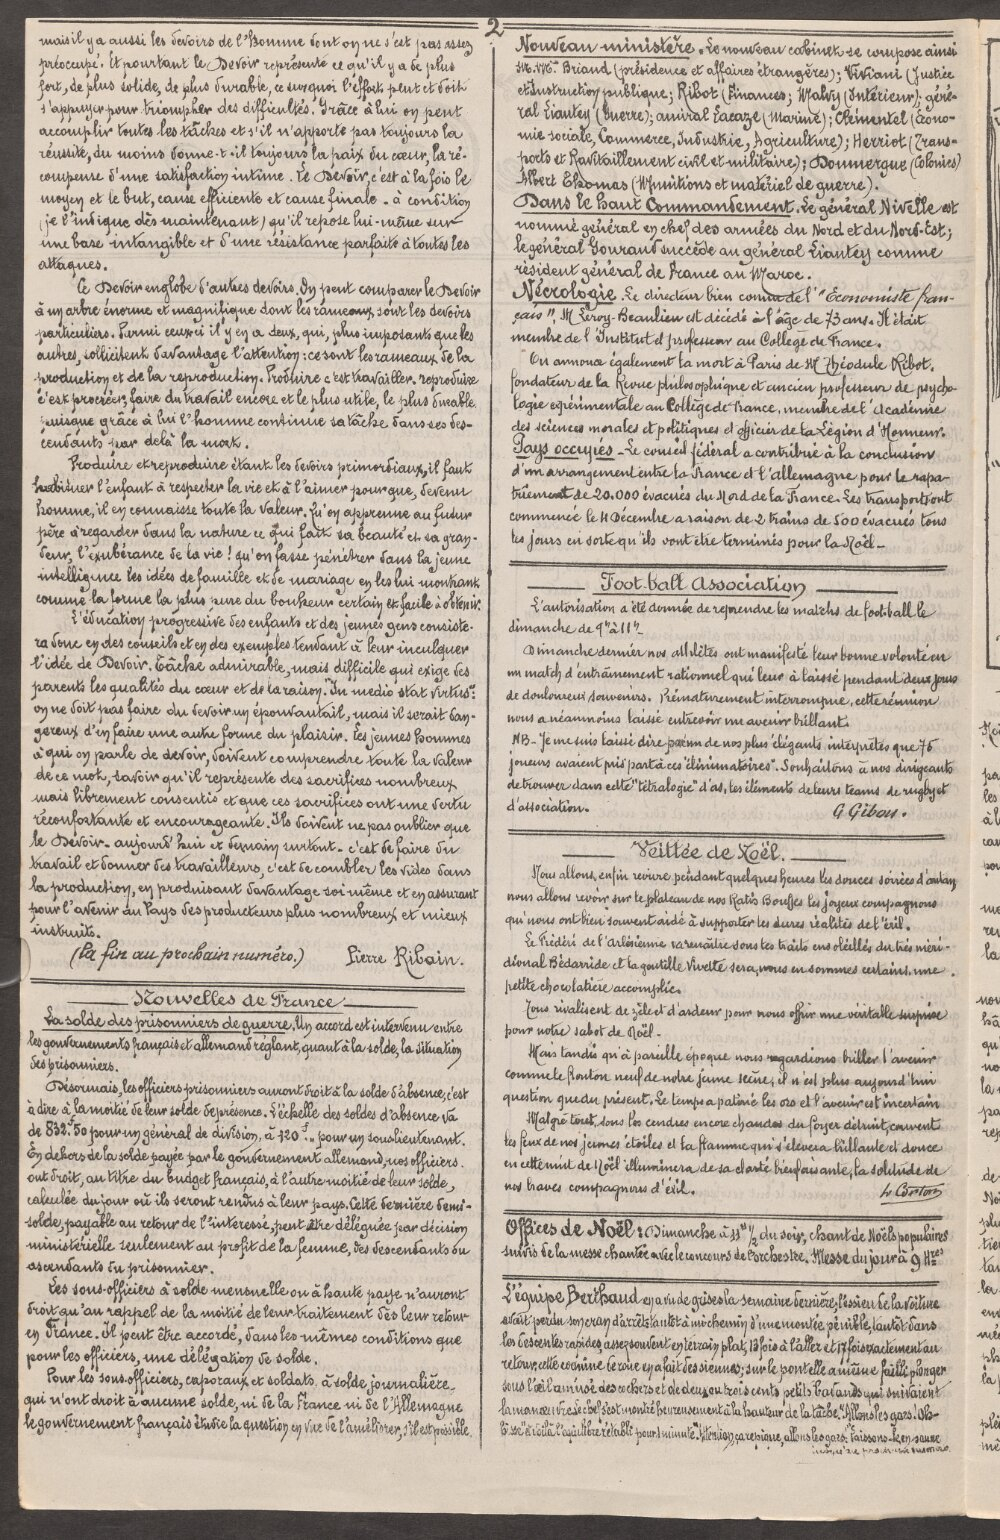 2
mais il y a aussi les devoirs de l'homme dont on ne s'est pas assez
préoccupé. Et pourtant le Devoir représente ce qu'il y a de plus
fort, de plus solide, de plus durable, ce sur quoi l'effort peut et doit
s'appuyer pour triompher des difficultés. Grâce à lui on peut
accomplir toutes les tâches et s'il n'apporte pas toujours la
réussite, du moins donne-t-il toujours la paix du cœur, la ré-
compense d'une satisfaction intime. Le Devoir, c'est à la fois le
moyen et le but, cause efficiente et cause finale - à condition
(je l'indique dès maintenant) qu'il repose lui-même sur
une base intangible et d'une résistance parfaite à toutes les
attaques.
Ce Devoir englobe d'autres devoirs. On peut comparer le Devoir
à un arbre énorme et magnifique dont les rameaux sont les devoirs
particuliers. Parmi ceux-ci il y en a deux, qui, plus imposants que les
autres, sollicitent davantage l'attention : ce sont les rameaux de la
production et de la reproduction. Produire c'est travailler. reproduire
c'est procréer, faire du travail encore et le plus utile, le plus durable
puisque grâce à lui l'homme continue sa tâche dans ses des-
cendants par delà la mort.
Produire et reproduire étant les devoirs primordiaux, il faut
habituer l'enfant à respecter la vie et à l'aimer pour que, devenu
homme, il en connaisse toute la valeur. Qu'on apprenne au futur
père à regarder dans la nature ce qui fait sa beauté et sa gran-
deur, l'exubérance de la vie ! qu'on fasse pénétrer dans la jeune
intelligence les idées de famille et de mariage en les lui montrant
comme la forme la plus pure du bonheur certain et facile à obtenir.
L'éducation progressive des enfants et des jeunes gens consiste-
ra donc en des conseils et en des exemples tendant à leur inculquer
l'idée de Devoir. Tâche admirable, mais difficile qui exige des
parents les qualités du cœur et de la raison. "In medio stat virtus":
on ne doit pas faire du devoir un épouvantail, mais il serait dan-
gereux d'en faire une autre forme du plaisir. Les jeunes hommes
à qui on parle de devoir, doivent comprendre toute la valeur
de ce mot, savoir qu'il représente des sacrifices nombreux
mais librement consentis et que ces sacrifices ont une vertu
réconfortante et encourageante. Ils doivent ne pas oublier que
le Devoir - aujourd'hui et demain surtout - c'est de faire du
travail et donner des travailleurs, c'est de combler les vides dans
la production, en produisant davantage soi-même et en assurant
pour l'avenir au Pays des producteurs plus nombreux et mieux
instruits.
(la fin au prochain numéro.) Pierre Ribain.
Nouvelles de France
La solde des prisonniers de guerre. Un accord est intervenu entre
les gouvernements français et allemand réglant, quant à la solde, la situation
des prisonniers.
Désormais, les officiers prisonniers auront droit à la solde d'absence, c'est
à dire à la moitié de leur solde de présence. L'échelle des soldes d'absence va
de 832f.50 pour un général de division, à 120f.. pour un sous lieutenant.
En dehors de la solde payée par le gouvernement allemand, nos officiers
ont droit, au titre du budget français, à l'autre moitié de leur solde,
calculée du jour où ils seront rendus à leur pays. Cette dernière demi-
solde, payable au retour de l'intéressé, peut être déléguée par décision
ministérielle seulement au profit de la femme, des descendants ou
ascendants du prisonnier.
Les sous-officiers à solde mensuelle ou à haute paye n'auront
droit qu'au rappel de la moitié de leur traitement dès leur retour
en France. Il peut être accordé, dans les mêmes conditions que
pour les officiers, une délégation de solde.
Pour les sous-officiers, caporaux et soldats à solde journalière,
qui n'ont droit à aucune solde, ni de la France ni de l'Allemagne
le gouvernement français étudie la question en vue de l'améliorer, s'il est possible.
Nouveau ministère. Le nouveau cabinet se compose ainsi
M.M. Briand (présidence et affaires étrangères); Viviani (Justice
et Instruction publique; Ribot (Finances; Malvy (Intérieur); géné-
ral Liautey (Guerre); amiral Lacaze (Marine); Clémentel (Écono-
mie sociale, Commerce, Industrie, Agriculture); Herriot (Trans-
ports et Ravitaillement civil et militaire); Doumergue (Colonies)
Albert Thomas (Munitions et matériel de guerre).
Dans le haut Commandement. Le général Nivelle est
nommé général en chef des armées du Nord et du Nord-Est;
le général Gouraud succède au général Liautey comme
résident général de France au Maroc.
Nécrologie. Le directeur bien connu de l'"Économiste fran-
çais", M Leroy-Beaulieu est décédé à l'âge de 73 ans. Il était
membre de l'Institut et professeur au Collège de France.
On annonce également la mort à Paris de Mr Théodule Ribot.
fondateur de la Revue philosophique et ancien professeur de psycho-
logie expérimentale au Collège de France, membre de l'Académie
des sciences morales et politiques et officier de la Légion d'Honneur.
Pays occupés - Le conseil fédéral a contribué à la conclusion
d'un arrangement entre la France et l'allemagne pour le rapa-
triement de 20.000 évacués du Nord de la France. Les transports ont
commencé le 4 Décembre a raison de 2 trains de 500 évacués tous
les jours en sorte qu'ils vont être terminés pour la Noël -
Foot-ball Association
L'autorisation a été donnée de reprendre les matchs de foot-ball le
dimanche de 9h à 11h -
Dimanche dernier nos athlètes ont manifesté leur bonne volonté en
un match d'entrainement rationnel qui leur à laissé pendant deux jours
de douloureux souvenirs. Prématurement interrompue, cette réunion
nous a néanmoins laissé entrevoir un avenir brillant.
NB - Je me suis laissé dire par un de nos plus élégants interprètes que 76
joueurs avaient pris part à ces "éliminatoires". Souhaitons à nos dirigeants
de trouver dans cette "tétralogie" d'as, les éléments de leurs teams de rugby et
d'association. G Gibous.
Veillée de Noël.
Nous allons, enfin revivre pendant quelques heures les douces soirées d'antan,
nous allons revoir sur le plateau de nos Katis Bouffes les joyeux compagnons
qui nous ont bien souvent aidé à supporter les dures réalités de l'éxil.
Le Frédéri de l'arlésienne va renaître sous les traits ensoleillés du très méri-
dional Bédarride et la gentille Vivette sera, nous en sommes certains, une
petite chocolatière accomplie.
Tous rivalisent de zèle et d'ardeur pour nous offrir une véritable surprise
pour notre sabot de Noël -
Mais tandis qu'à pareille époque nous regardions briller l'avenir
comme le fronton neuf de notre jeune scène, il n'est plus aujourd'hui
question que du présent. Le temps a patiné les ors et l'avenir est incertain
Malgré tout, sous les cendres encore chaudes du foyer détruit, couvent
les feux de nos jeunes étoiles et la flamme qui s'élèvera brillante et douce
en cette nuit de Noël illuminera de sa clarté bienfaisante, la solitude de
nos braves compagnons d'éxil.
Offices de Noël : Dimanche à 11h ½ du soir, chant de Noëls populaires
suivis de la messe chantée avec le concours de l'orchestre. Messe du jour à 9 Hres
L'équipe Berthaud en a vu de grises la semaine dernière, l'essieu de la voiture
avait perdu son cran d'arrêt, tantôt à mi-chemin d'une montée pénible, tantôt dans
les descentes rapides, assez souvent en terrain plat, 13 fois à l'aller et 17 fois exactement au
retour, cette coquine de roue en a fait des siennes; sur le pont elle a même failli plonger
sous l'œil amusé des rochers et de deux ou trois cents petits badauds qui suivaient
la manœuvre. Le chef s'est montré heureusement à la hauteur de la tâche. "Allons les gars! Oh-
l'équilibre rétabli pour 1 minute. "Attention, ça repique, allons les gars.